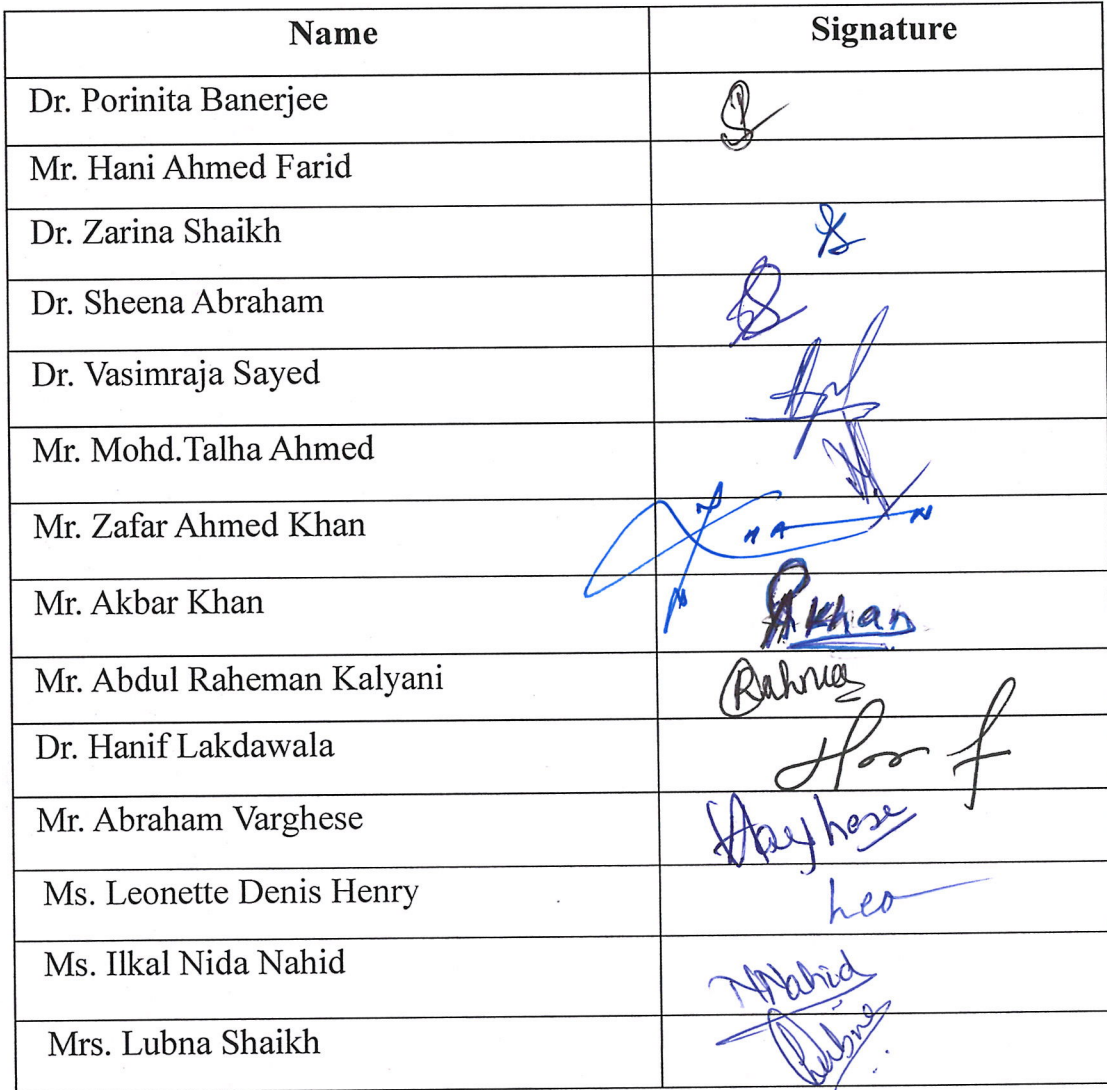 Name Signature
Dr. Porinita Banerjee
Mr. Hani Ahmed Farid
Dr. Zarina Shaikh
Dr. Sheena Abraham
Dr. Vasimraja Sayed
Mr. Mohd.Talha Ahmed
Mr. Zafar Ahmed Khan
Mr. Akbar Khan Akhan
Mr. Abdul Raheman Kalyani
Dr. Hanif Lakdawala
Mr. Abraham Varghese
Ms. Leonette Denis Henry Leo
Ms. Ilkal Nida Nahid NNahid
Mrs. Lubna Shaikh